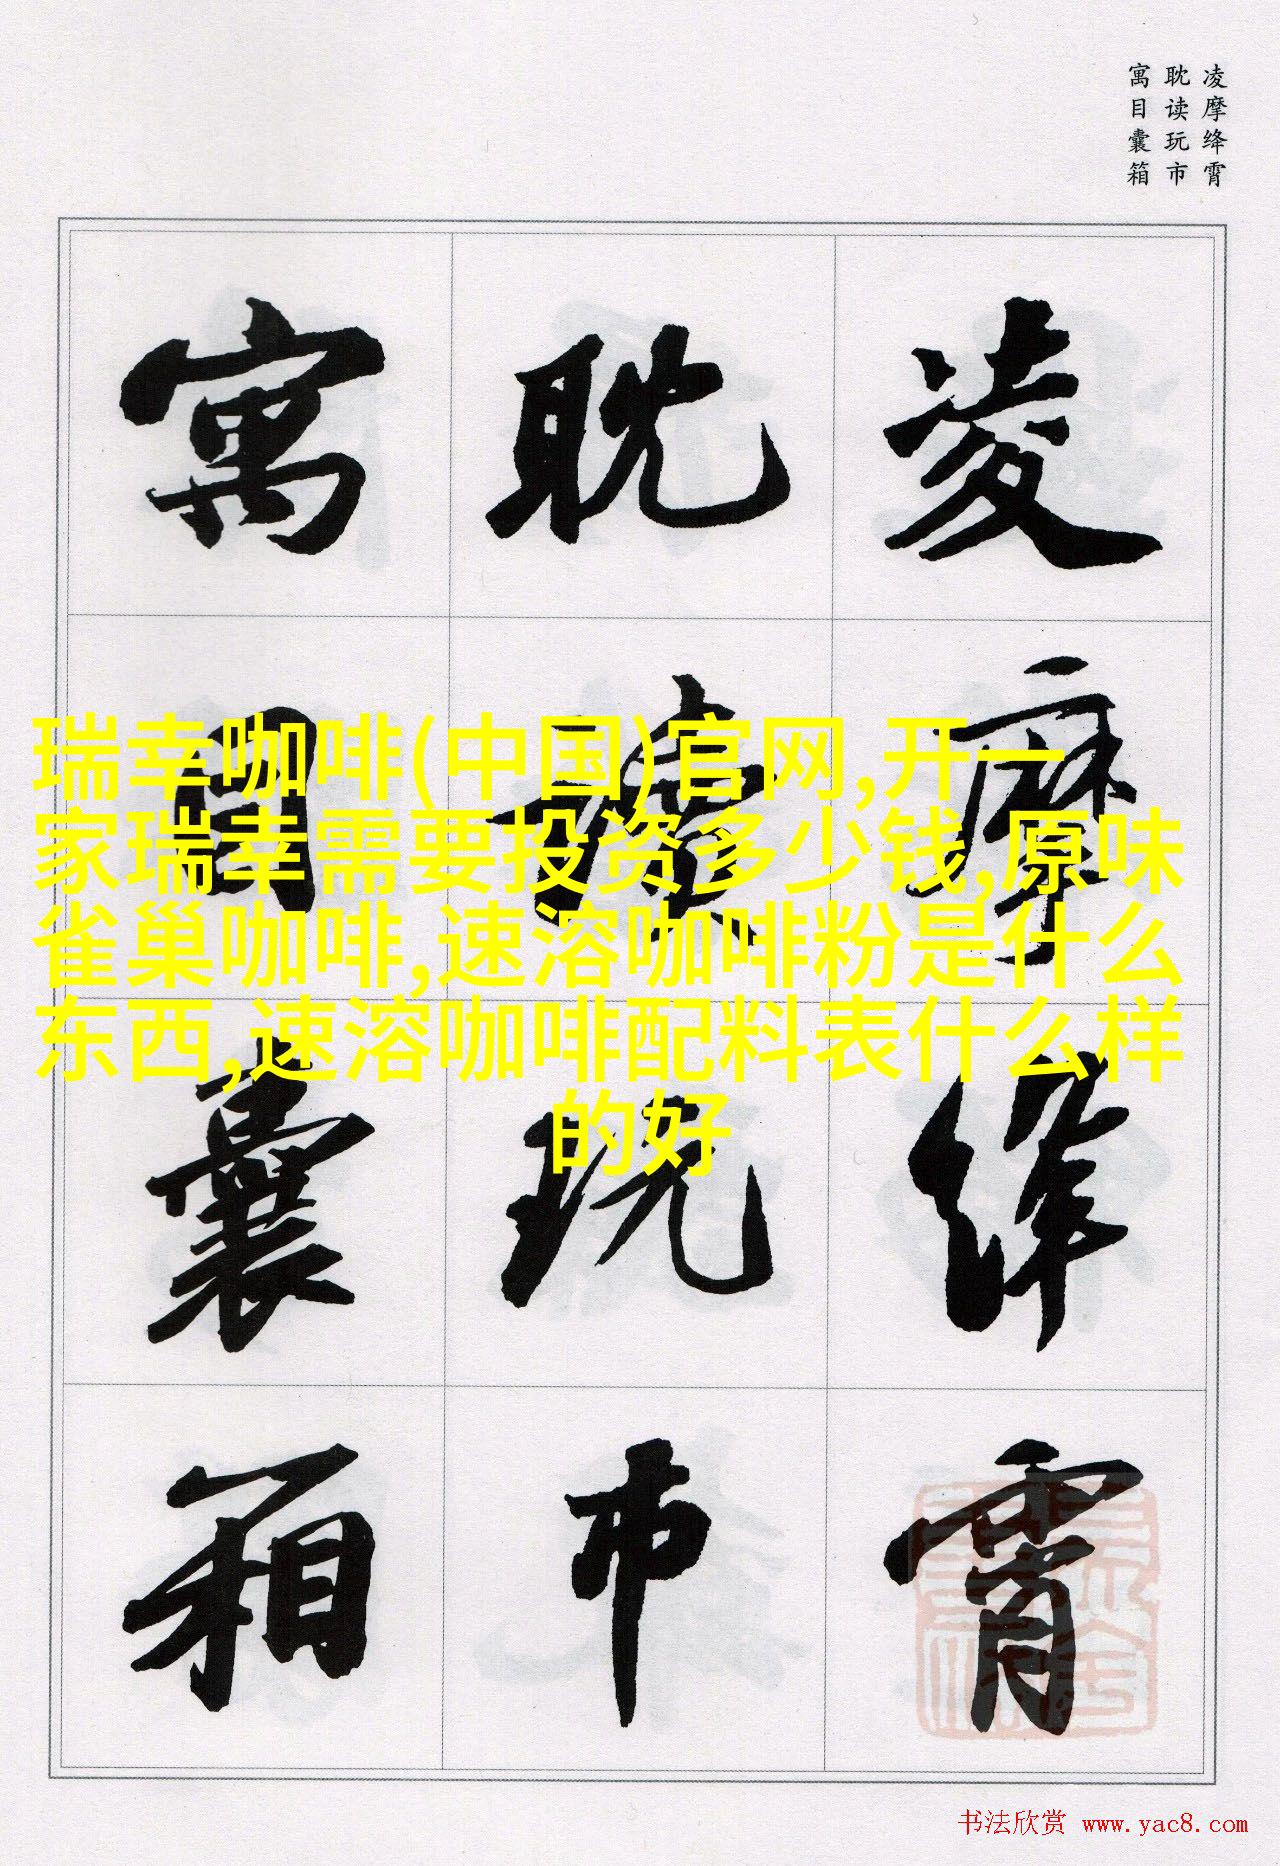 凌摩绛霄
耽读玩市
寓目囊箱
凌摩绛霄
耽读玩市
寓目囊箱
瑞幸咖啡(中国)官网,开一
家瑞幸需要投资多少钱,原味
雀巢咖啡,速溶咖啡粉是什么
东西,速溶咖啡配料表什么样
的好
书法欣赏 www.yac8.com